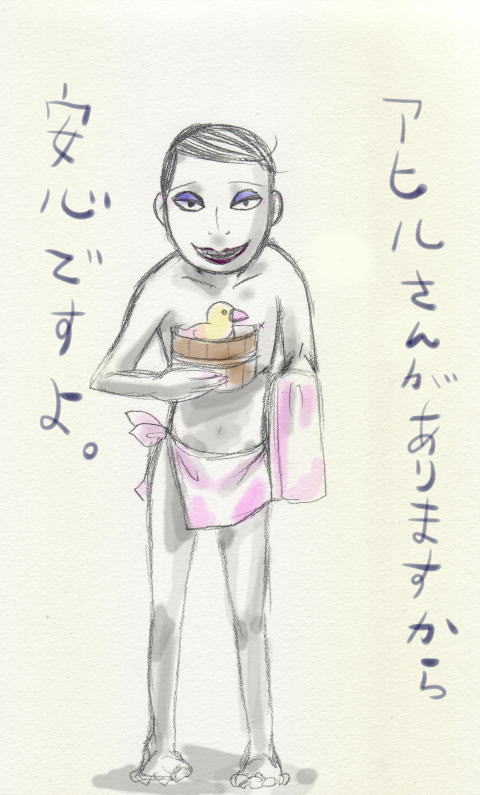 アヒルさんがありますから
安心ですよ。